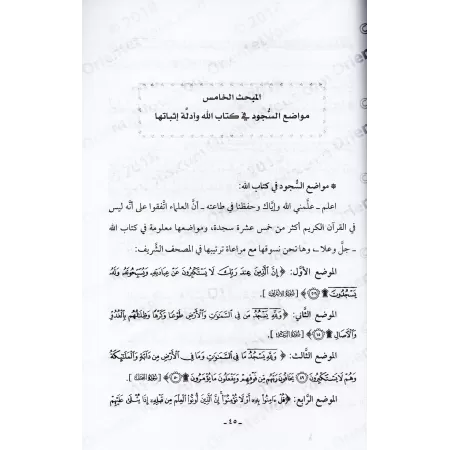 المبحث الخامس
مواضع السُّجود في كتاب الله وأدلَّة إثباتها
* مواضع السُّجود في كتاب الله:
اعلم ـ علَّمني الله وإيَّاك وحفظنا في طاعته ـ أنَّ العلماء اتَّفقوا على أنَّه ليس
في القرآن الكريم أكثر من خمس عشرة سجدة، ومواضعها معلومة في كتاب الله
ـ جلَّ وعلا ـ، وها نحن نسوقها مع مراعاة ترتيبها في المصحف الشَّريف:
الموضع الأوَّل: ﴿إِنَّ الَّذِينَ عِندَ رَبِّكَ لَا يَسْتَكْبِرُونَ عَنْ عِبَادَتِهِ وَيُسَبِّحُونَهُ وَلَهُ
يَسْجُدُونَ ۩ ﴿٢٠٦﴾﴾ [سُورَةُ الأَعْرَافِ].
الموضع الثَّاني: ﴿وَلِلَّهِ يَسْجُدُ مَن فِي السَّمَاوَاتِ وَالْأَرْضِ طَوْعًا وَكَرْهًا وَظِلَالُهُم بِالْغُدُوِّ
وَالْآصَالِ ۩ ﴿١٥﴾﴾ [سُورَةُ الرَّعْدِ].
الموضع الثَّالث: ﴿وَلِلَّهِ يَسْجُدُ مَا فِي السَّمَاوَاتِ وَمَا فِي الْأَرْضِ مِن دَابَّةٍ وَالْمَلَائِكَةُ
وَهُمْ لَا يَسْتَكْبِرُونَ ﴿٤٩﴾ يَخَافُونَ رَبَّهُم مِّن فَوْقِهِمْ وَيَفْعَلُونَ مَا يُؤْمَرُونَ ۩ ﴿٥٠﴾﴾ [سُورَةُ النَّحْلِ].
الموضع الرَّابع: ﴿قُلْ آمِنُوا بِهِ أَوْ لَا تُؤْمِنُوا إِنَّ الَّذِينَ أُوتُوا الْعِلْمَ مِن قَبْلِهِ إِذَا يُتْلَى عَلَيْهِمْ
ـ ٤٥ ـ